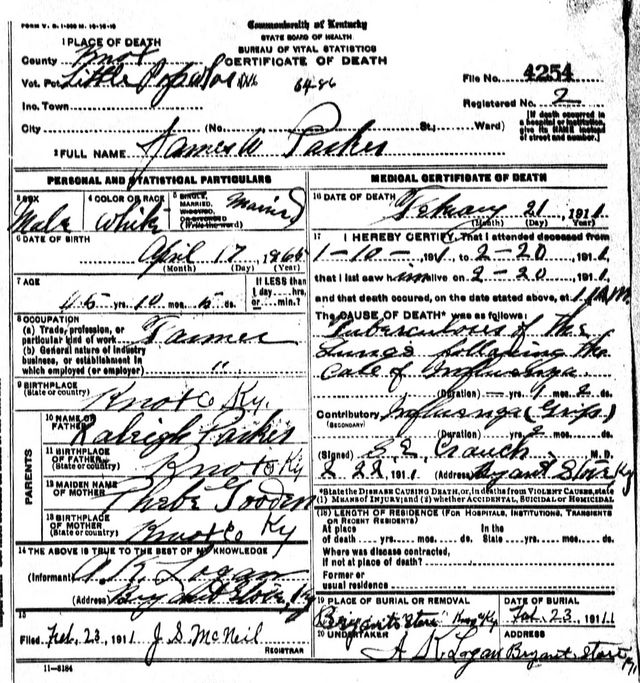 FORM V. S. 1-300 M. 10-10-10
Commonwealth of Kentucky
STATE BOARD OF HEALTH
BUREAU OF VITAL STATISTICS
CERTIFICATE OF DEATH
1 PLACE OF DEATH
County Knox
Vot. Pct. Little Poplar 6486
File No. 4254
Inc. Town
Registered No. 2
City (No. St.; Ward)
[If death occurred in a hospital or institution, give its NAME instead of street and number.]
2 FULL NAME James W Parker
PERSONAL AND STATISTICAL PARTICULARS
3 SEX Male
4 COLOR OR RACE White
5 SINGLE, MARRIED, WIDOWED, OR DIVORCED (Write the word) Married
6 DATE OF BIRTH
April 17, 1865
(Month) (Day) (Year)
7 AGE
45 yrs. 10 mos. 5 ds.
If LESS than 1 day....hrs. or....min.?
8 OCCUPATION
(a) Trade, profession, or
particular kind of work Farmer
(b) General nature of industry
business, or establishment in
which employed (or employer) "
9 BIRTHPLACE
(State or country) Knox Co Ky.
PARENTS
10 NAME OF FATHER Raleigh Parker
11 BIRTHPLACE OF FATHER (State or country) Knox Co Ky
12 MAIDEN NAME OF MOTHER Phebe Gooden
13 BIRTHPLACE OF MOTHER (State or country) Knox Co Ky
14 THE ABOVE IS TRUE TO THE BEST OF MY KNOWLEDGE
(Informant) A. K. Logan
(Address) Bryant Store, Ky
15
Filed Feb. 23, 1911 J. S. McNeil
REGISTRAR
11-3184
MEDICAL CERTIFICATE OF DEATH
16 DATE OF DEATH
February 21, 1911
(Month) (Day) (Year)
17 I HEREBY CERTIFY, That I attended deceased from
1-10-, 1911, to 2-20, 1911,
that I last saw him alive on 2-20, 1911,
and that death occured, on the date stated above, at 1
The CAUSE OF DEATH* was as follows:
Tuberculosis of the
Lungs following the
Influenza
(Duration) yrs. 1 mos. 2 ds.
Contributory Influenza (Grip)
(SECONDARY)
(Duration) yrs. 2 mos. ds.
(Signed) S. E. Crauch M. D.
2 22, 1911 (Address) Bryant Store Ky
*State the DISEASE CAUSING DEATH, or, in deaths from VIOLENT CAUSES, state (1) MEANS OF INJURY; and (2) whether ACCIDENTAL, SUICIDAL or HOMICIDAL
18) LENGTH OF RESIDENCE (FOR HOSPITALS, INSTITUTIONS, TRANSIENTS
OR RECENT RESIDENTS)
At place of death yrs. mos. ds. In the State yrs. mos. ds.
Where was disease contracted,
if not at place of death?
Former or
usual residence
19 PLACE OF BURIAL OR REMOVAL
Bryants Store Ky
DATE OF BURIAL
Feb. 23, 1911
20 UNDERTAKER
A K Logan
ADDRESS
Bryant Store Ky.